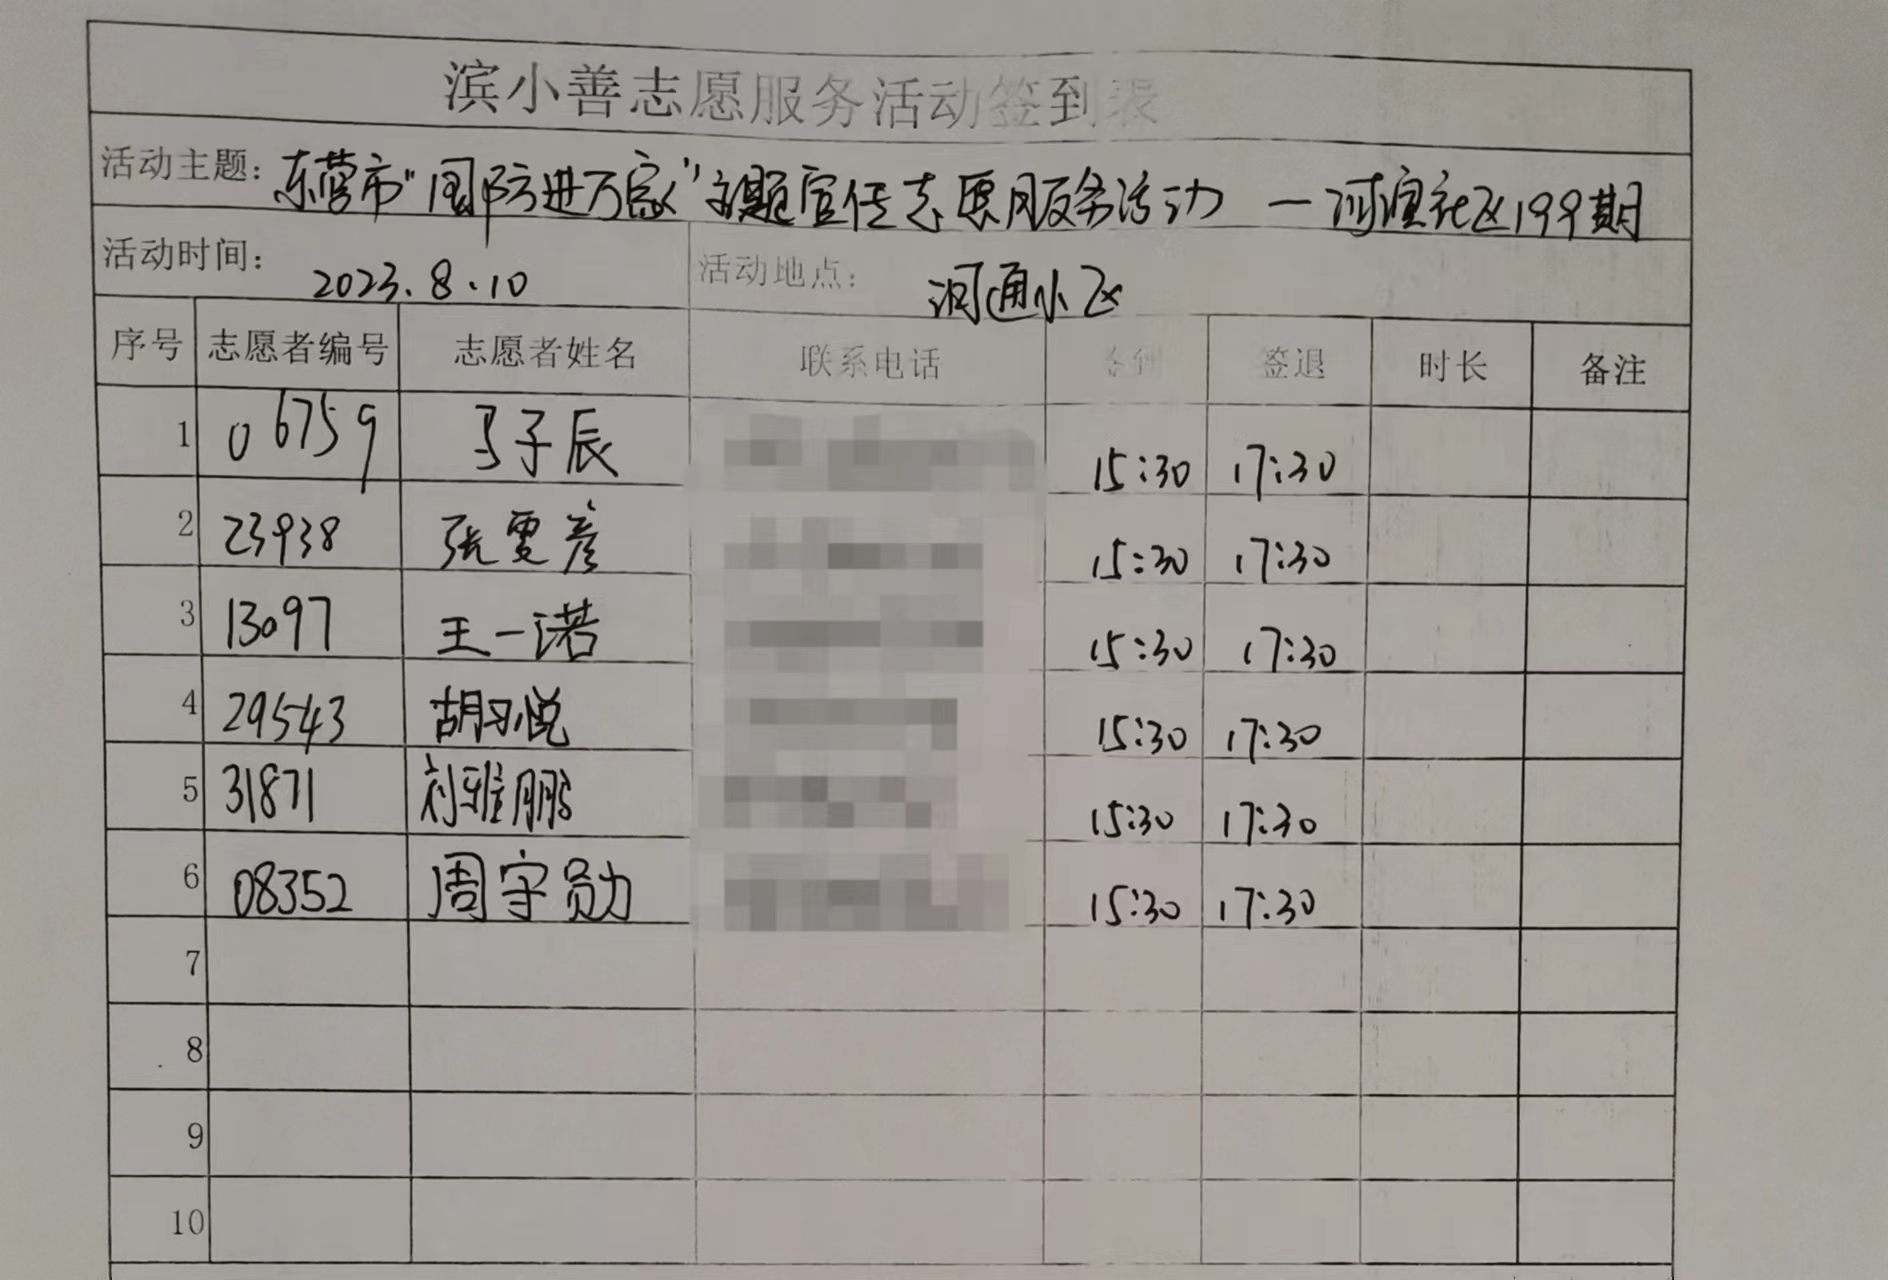 滨小善志愿服务活动签到表
活动主题：东营市"国防进万家"主题宣传志愿服务活动 —河滨社区199期
活动时间： 2023.8.10 活动地点： 河通小区
序号 志愿者编号 志愿者姓名 联系电话 签到 签退 时长 备注
1 06759 马子辰 15:30 17:30
2 23938 张雯彦 15:30 17:30
3 13097 王一诺 15:30 17:30
4 29543 胡习悦 15:30 17:30
5 31871 刘雅鹏 15:30 17:30
6 08352 周宇勋 15:30 17:30
7
8
9
10